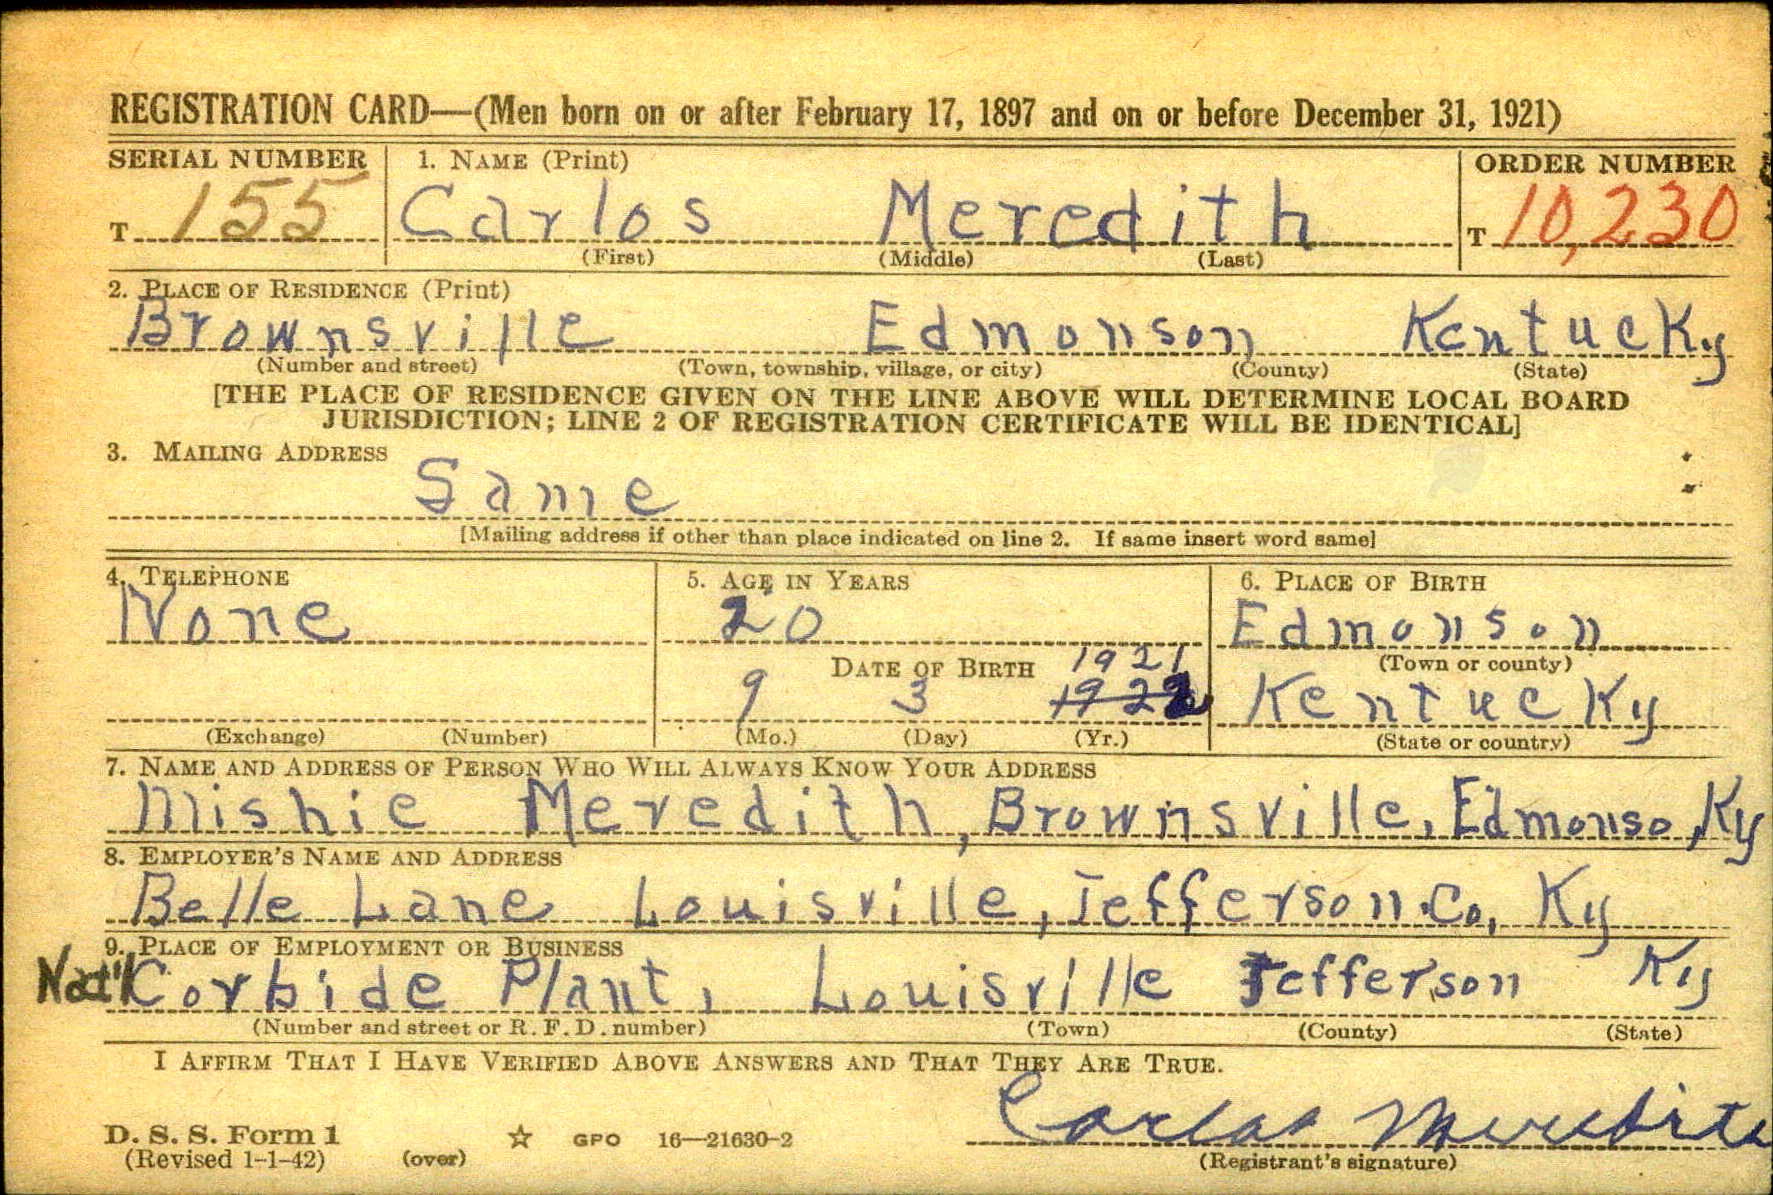 REGISTRATION CARD—(Men born on or after February 17, 1897 and on or before December 31, 1921)
SERIAL NUMBER 1. NAME (Print) ORDER NUMBER
T 155 Carlos Meredith T 10,230
(First) (Middle) (Last)
2. PLACE OF RESIDENCE (Print)
Brownsville Edmonson Kentucky
(Number and street) (Town, township, village, or city) (County) (State)
[THE PLACE OF RESIDENCE GIVEN ON THE LINE ABOVE WILL DETERMINE LOCAL BOARD
JURISDICTION; LINE 2 OF REGISTRATION CERTIFICATE WILL BE IDENTICAL]
3. MAILING ADDRESS
Same
[Mailing address if other than place indicated on line 2. If same insert word same]
4. TELEPHONE 5. AGE IN YEARS 6. PLACE OF BIRTH
None 20 Edmonson
DATE OF BIRTH 1921 (Town or county)
9 3 1922 Kentucky
(Exchange) (Number) (Mo.) (Day) (Yr.) (State or country)
7. NAME AND ADDRESS OF PERSON WHO WILL ALWAYS KNOW YOUR ADDRESS
Mishie Meredith, Brownsville, Edmonso, Ky
8. EMPLOYER'S NAME AND ADDRESS
Belle Lane Louisville, Jefferson Co, Ky
9. PLACE OF EMPLOYMENT OR BUSINESS
Nat'l Corbide Plant, Louisville Jefferson Ky
(Number and street or R. F. D. number) (Town) (County) (State)
I AFFIRM THAT I HAVE VERIFIED ABOVE ANSWERS AND THAT THEY ARE TRUE.
Carlos Meredith
D. S. S. Form 1 ☆ GPO 16—21630-2
(Revised 1-1-42) (over) (Registrant's signature)